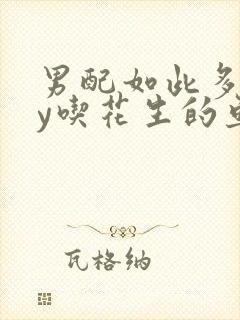 男配如此多
y喫花生的
瓦格纳